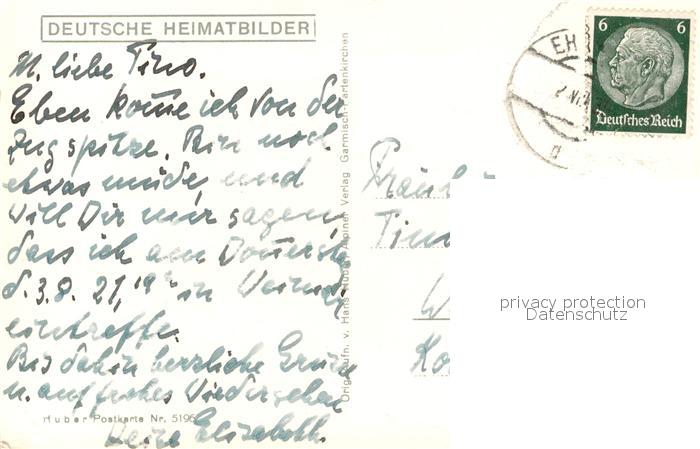 DEUTSCHE HEIMATBILDER
M. liebe Tino.
Eben kome ich von der
Zugspitze. Bin noch
etwas müde, und
will Dir nur sagen,
dass ich am Donnerst
d. 3.8. 21,19 in
eintreffe.
Bis dahin herzliche
u. auf frohes Wiedersehen
Deine Elisabeth.
Huber Postkarte Nr. 5196
Orig. Aufn. v. Hans Huber Alpiner Verlag Garmisch-Partenkirchen
Fräul
Tin
W
Ko
6 6
Deutsches Reich
EH
privacy protection
Datenschutz